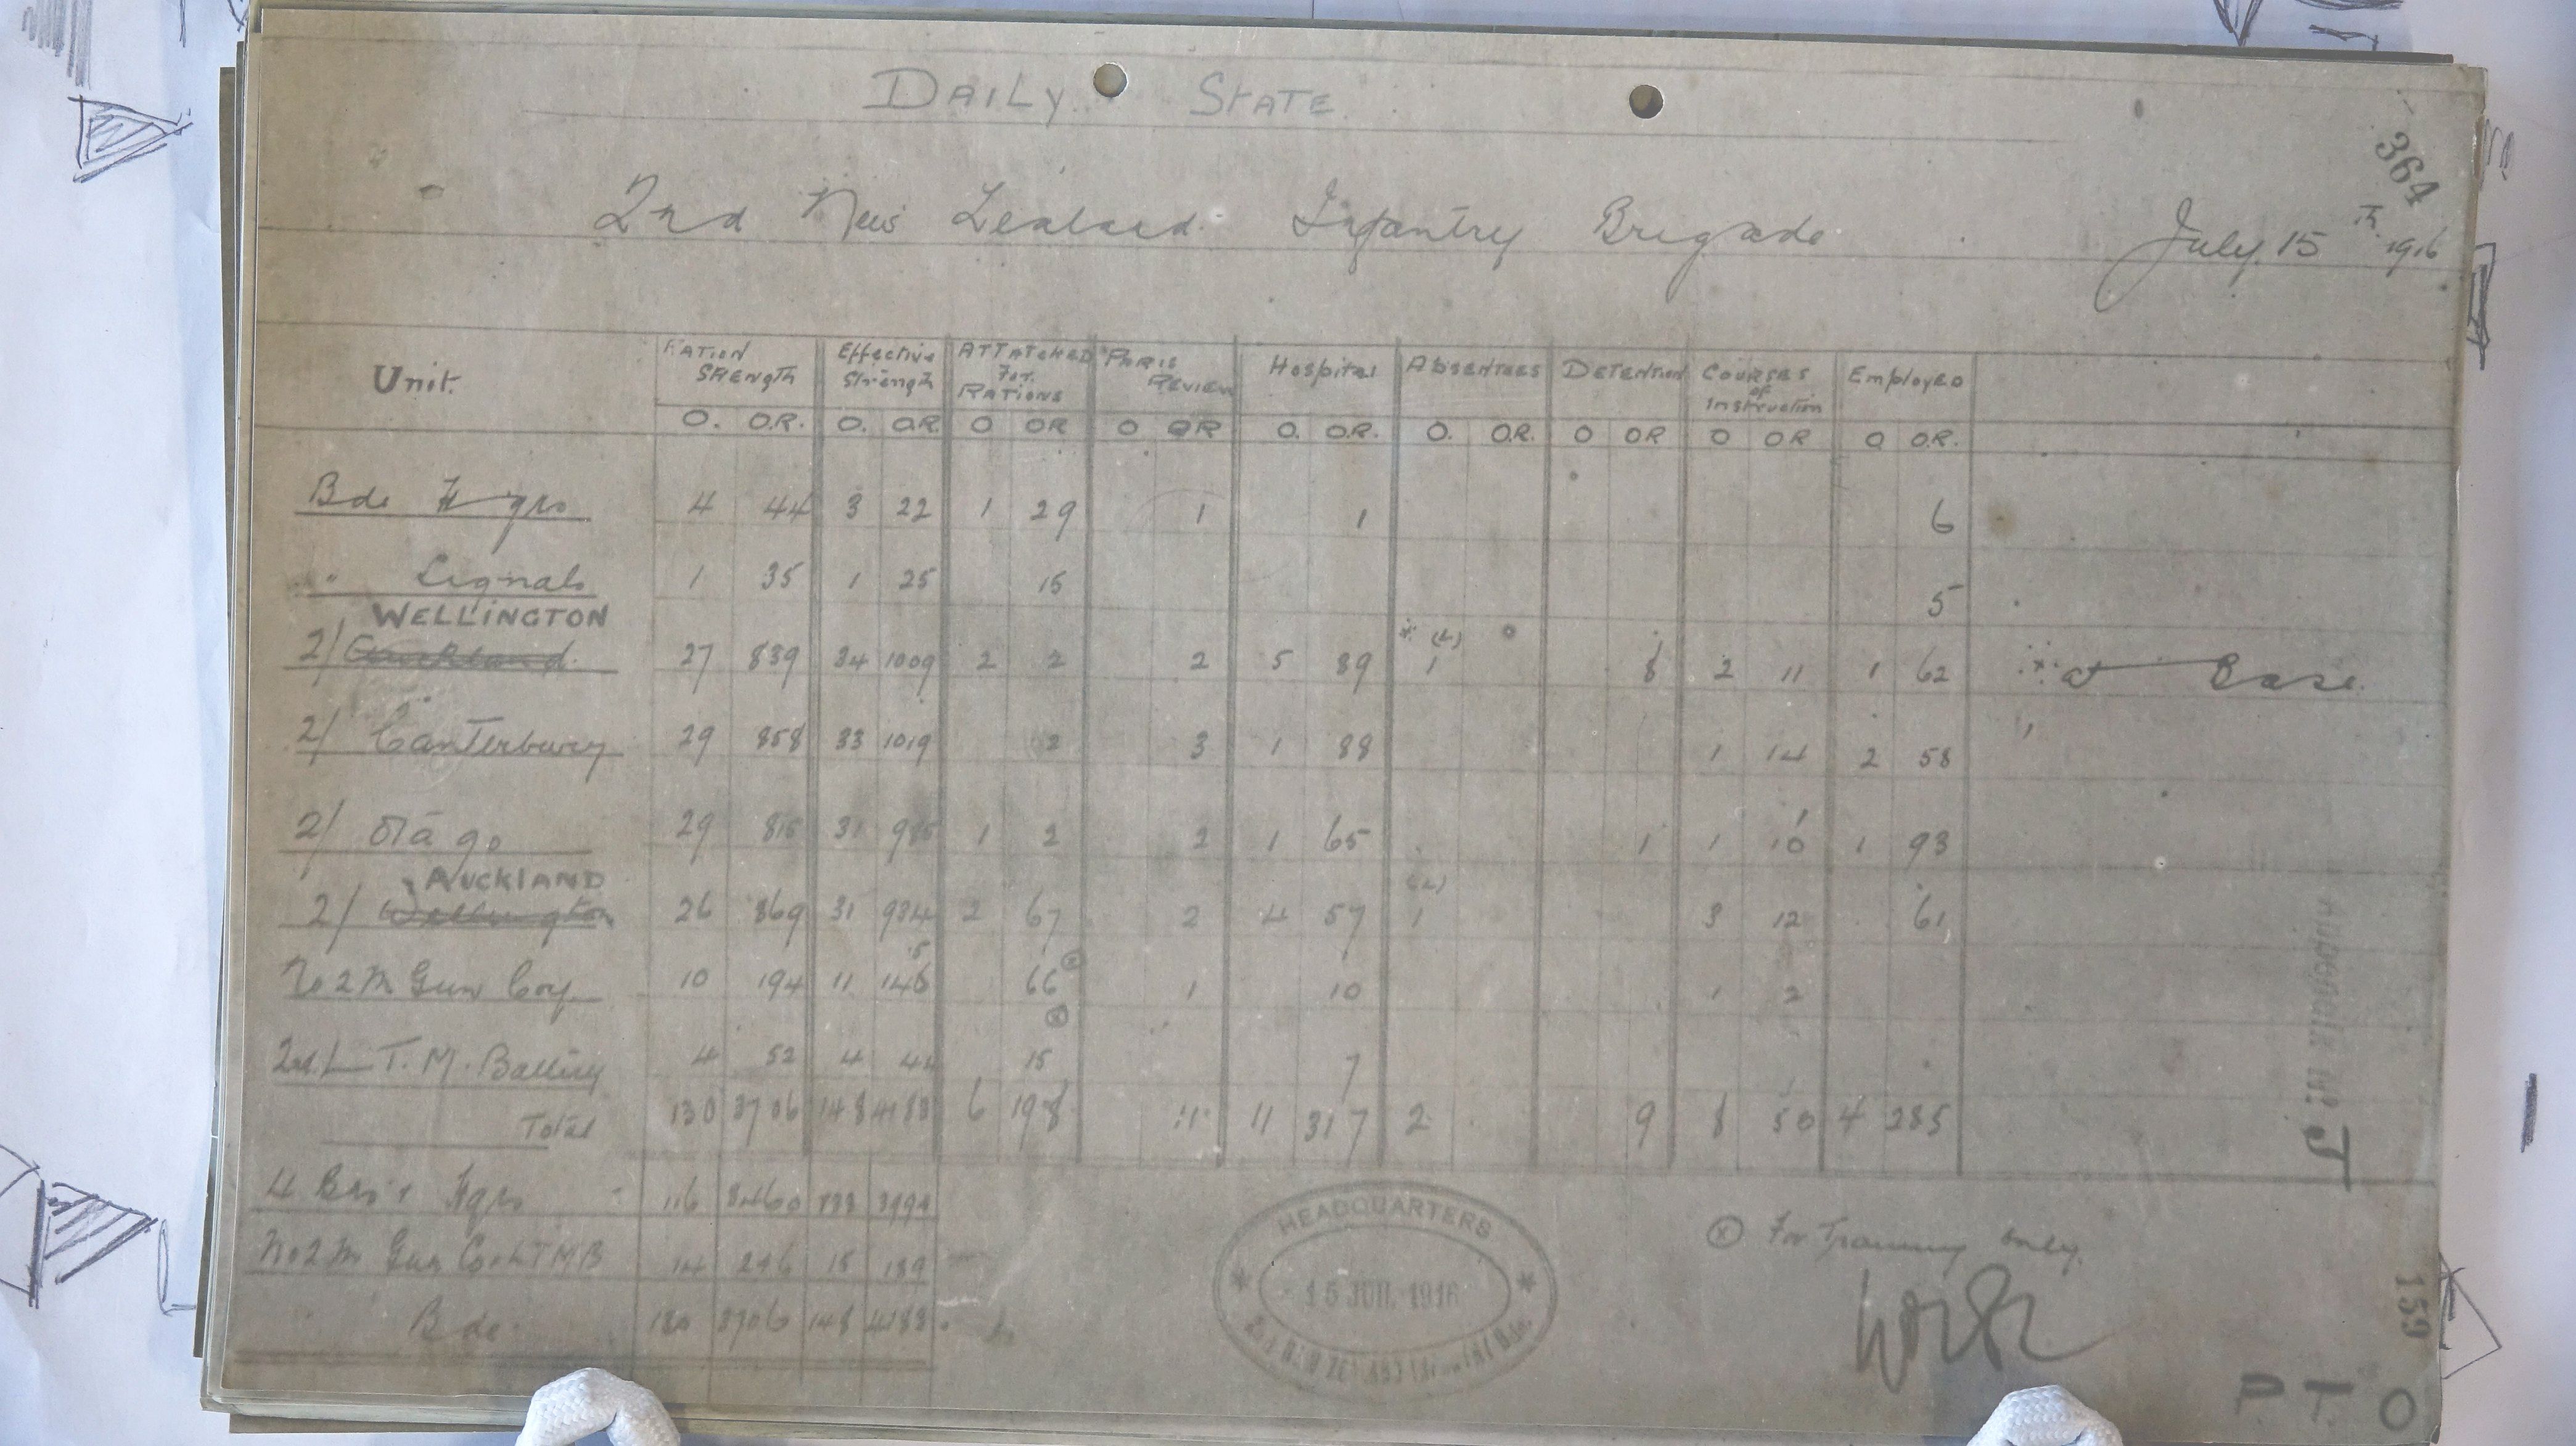 364
DAILY STATE
2nd New Zealand Infantry Brigade July 15th 1916
Unit. RATION SRENGTH Effective Strength ATTATCHED For RATIONS PARIS REVIEW Hospital ABSENTEES DETENTION COURSES of Instruction Employed
O. O.R. O. OR O OR O OR O. O.R. O. O.R. O OR O OR O O.R.
Bde Hqrs 4 44 3 22 1 29 1 1 6
" Signals 1 35 1 25 15 5
WELLINGTON
2/ Auckland 27 839 34 1009 2 2 2 5 89 1 8 2 11 1 62 at Base.
2/ Canterbury 29 858 33 1019 2 3 1 88 1 14 2 58
2/ Otago 29 815 31 985 1 2 2 1 65 1 1 10 1 93
AUCKLAND
2/ Wellington 26 869 31 934 2 67 2 4 57 1 3 12 61
No 2 M Gun Coy. 10 194 11 145 66 ⓧ 1 10 1 2
2nd L T. M. Battery 4 52 4 44 15 ⓧ 7
Total 130 3706 148 4183 6 198 11 11 317 2 9 8 50 4 285
4 Bns & Hqrs 116 3460 133 3994
No 2 M Gun Co & LTMB 14 246 15 189
Bde. 130 3706 148 4183
HEADQUARTERS
15 JUL. 1916
ⓧ For Training only.
APPENDIX No J
159
P T O